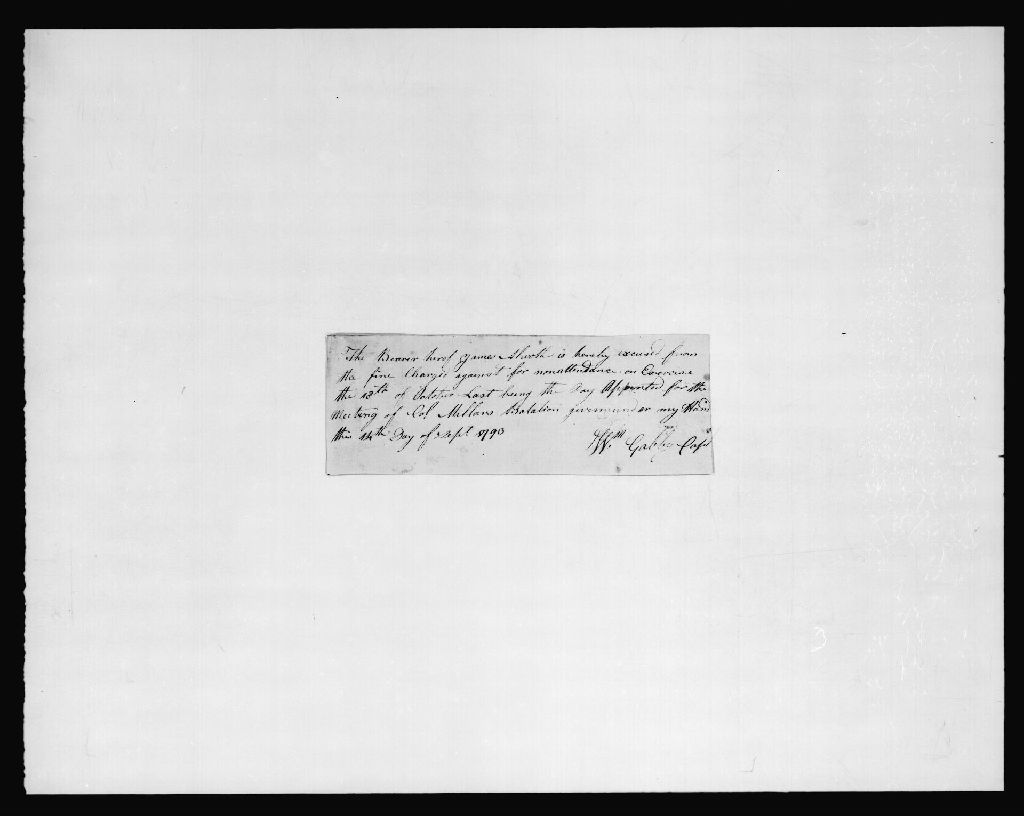 The Bearer herof James is hereby excused from
the fine Charged against for nonattendance on Exercise
the 13th of October Last being the Day Appointed for the
Meeting of Col Mellans Batalion given under my Hand
this 14th Day of Sept 1793
Wm Capt
3